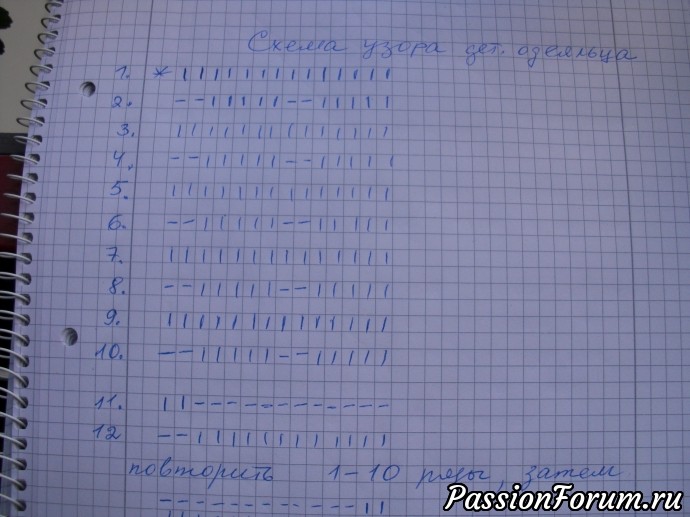 Схема узора дет. одеяльца
1. * | | | | | | | | | | | | | |
2. – – | | | | | – – | | | | |
3. | | | | | | | | | | | | | |
4. – – | | | | | – – | | | | |
5. | | | | | | | | | | | | | |
6. – – | | | | | – – | | | | |
7. | | | | | | | | | | | | | |
8. – – | | | | | – – | | | | |
9. | | | | | | | | | | | | | |
10. – – | | | | | – – | | | | |
11. | | – – – – – – – – – – – –
12 – – | | | | | | | | | | | |
повторить 1–10 ряды, затем
– – – – – – – – – – – – | |
PassionForum.ru